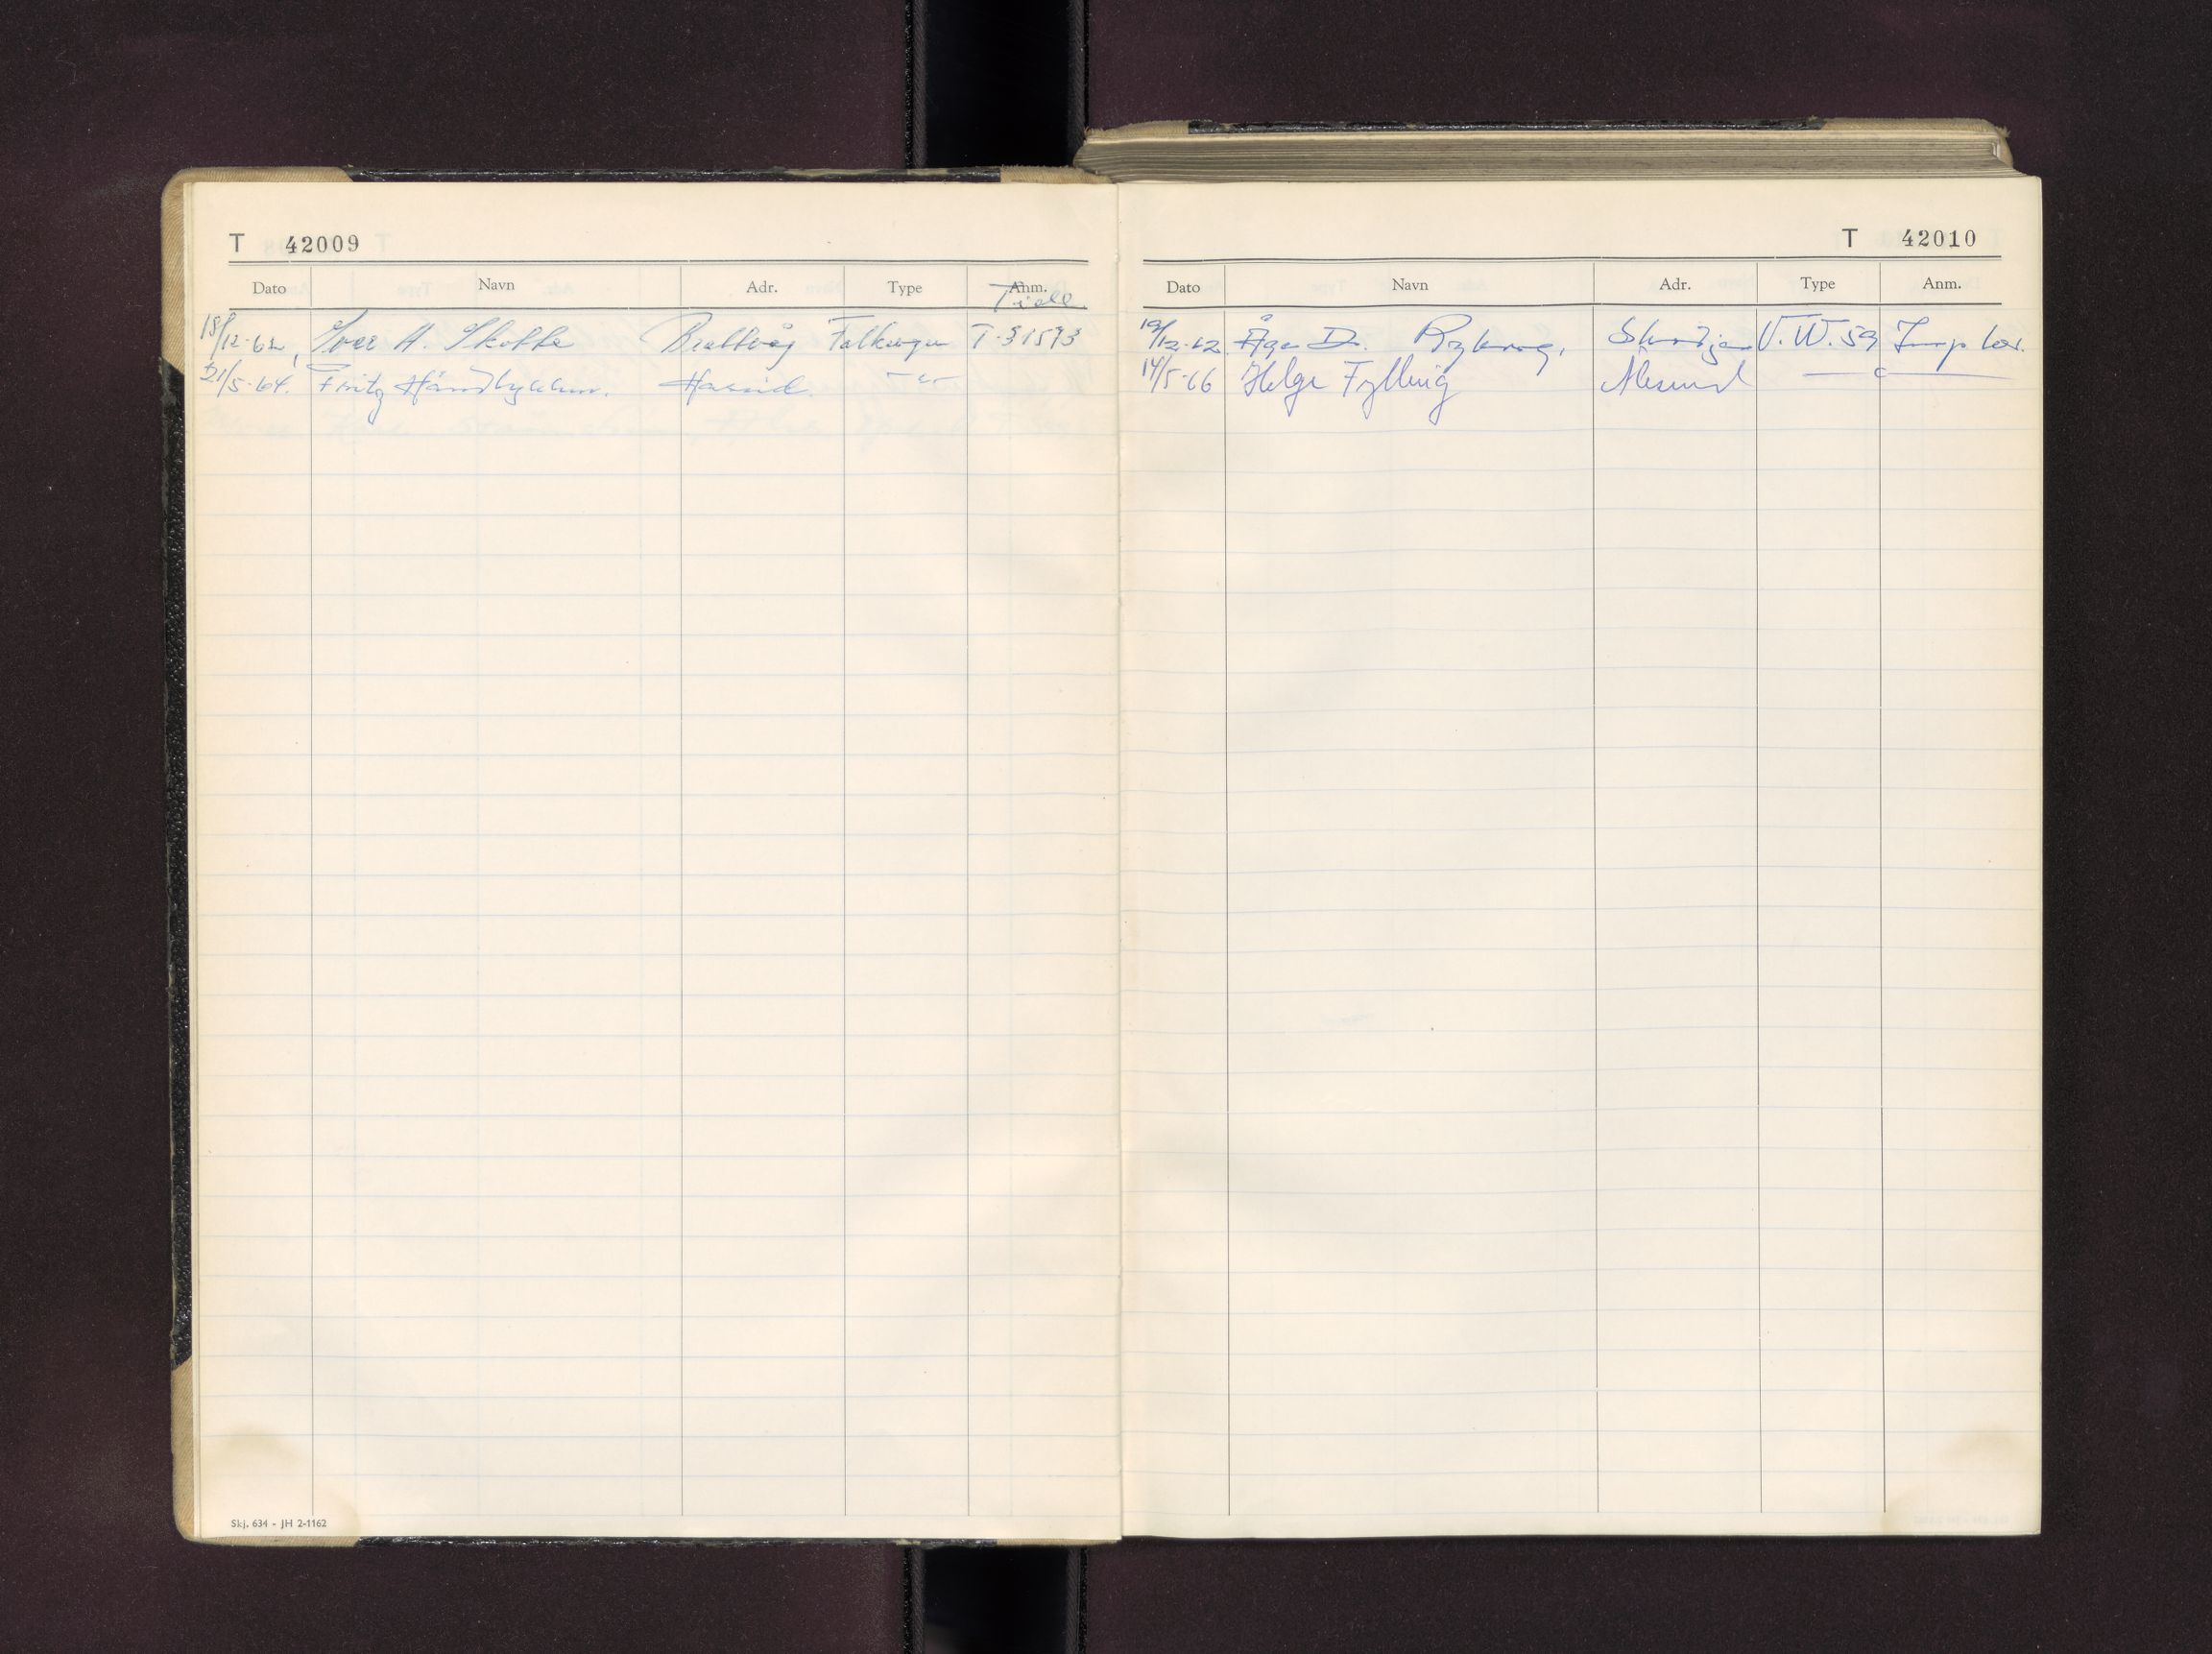 T 42009
Dato Navn Adr. Type Anm.
18/12-62, Ivar H. Skotte Brattvåg Folkevogn T-31593
21/5-64. Fritz Hareid
T 42010
Dato Navn Adr. Type Anm.
19/12-62 Åge Dr. Skodje V.W. 59 Imp
14/5-66 Helge Fylling Ålesund
Skj. 634 - JH 2-1162